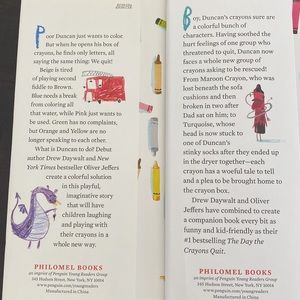 Poor Duncan just wants to color.
But when he opens his box of
crayons, he finds only letters, all
saying the same thing: We quit!
Beige is tired
of playing second
fiddle to Brown.
Blue needs a break
from coloring all
that water, while Pink just wants to
be used. Green has no complaints,
but Orange and Yellow are no
longer speaking to each other.
What is Duncan to do? Debut
author Drew Daywalt and New
York Times bestseller Oliver Jeffers
create a colorful solution
in this playful,
imaginative story
that will have
children laughing
and playing with
their crayons in a
whole new way.
PHILOMEL BOOKS
an imprint of Penguin Young Readers Group
345 Hudson Street, New York, NY 10014
www.penguin.com/youngreaders
Manufactured in China
Boy, Duncan's crayons sure are
a colorful bunch of
characters. Having soothed the
hurt feelings of one group who
threatened to quit, Duncan now
faces a whole new group of
crayons asking to be rescued!
From Maroon Crayon, who was
lost beneath the sofa
cushions and then
broken in two after
Dad sat on him; to
Turquoise, whose
head is now stuck to
one of Duncan's
stinky socks after they ended up
in the dryer together—each
crayon has a woeful tale to tell
and a plea to be brought home to
the crayon box.
Drew Daywalt and Oliver
Jeffers have combined to create
a companion book every bit as
funny and kid-friendly as their
#1 bestselling The Day the
Crayons Quit.
PHILOMEL BOOKS
an imprint of Penguin Young Readers Group
345 Hudson Street, New York, NY 10014
www.penguin.com/youngreaders
Manufactured in China